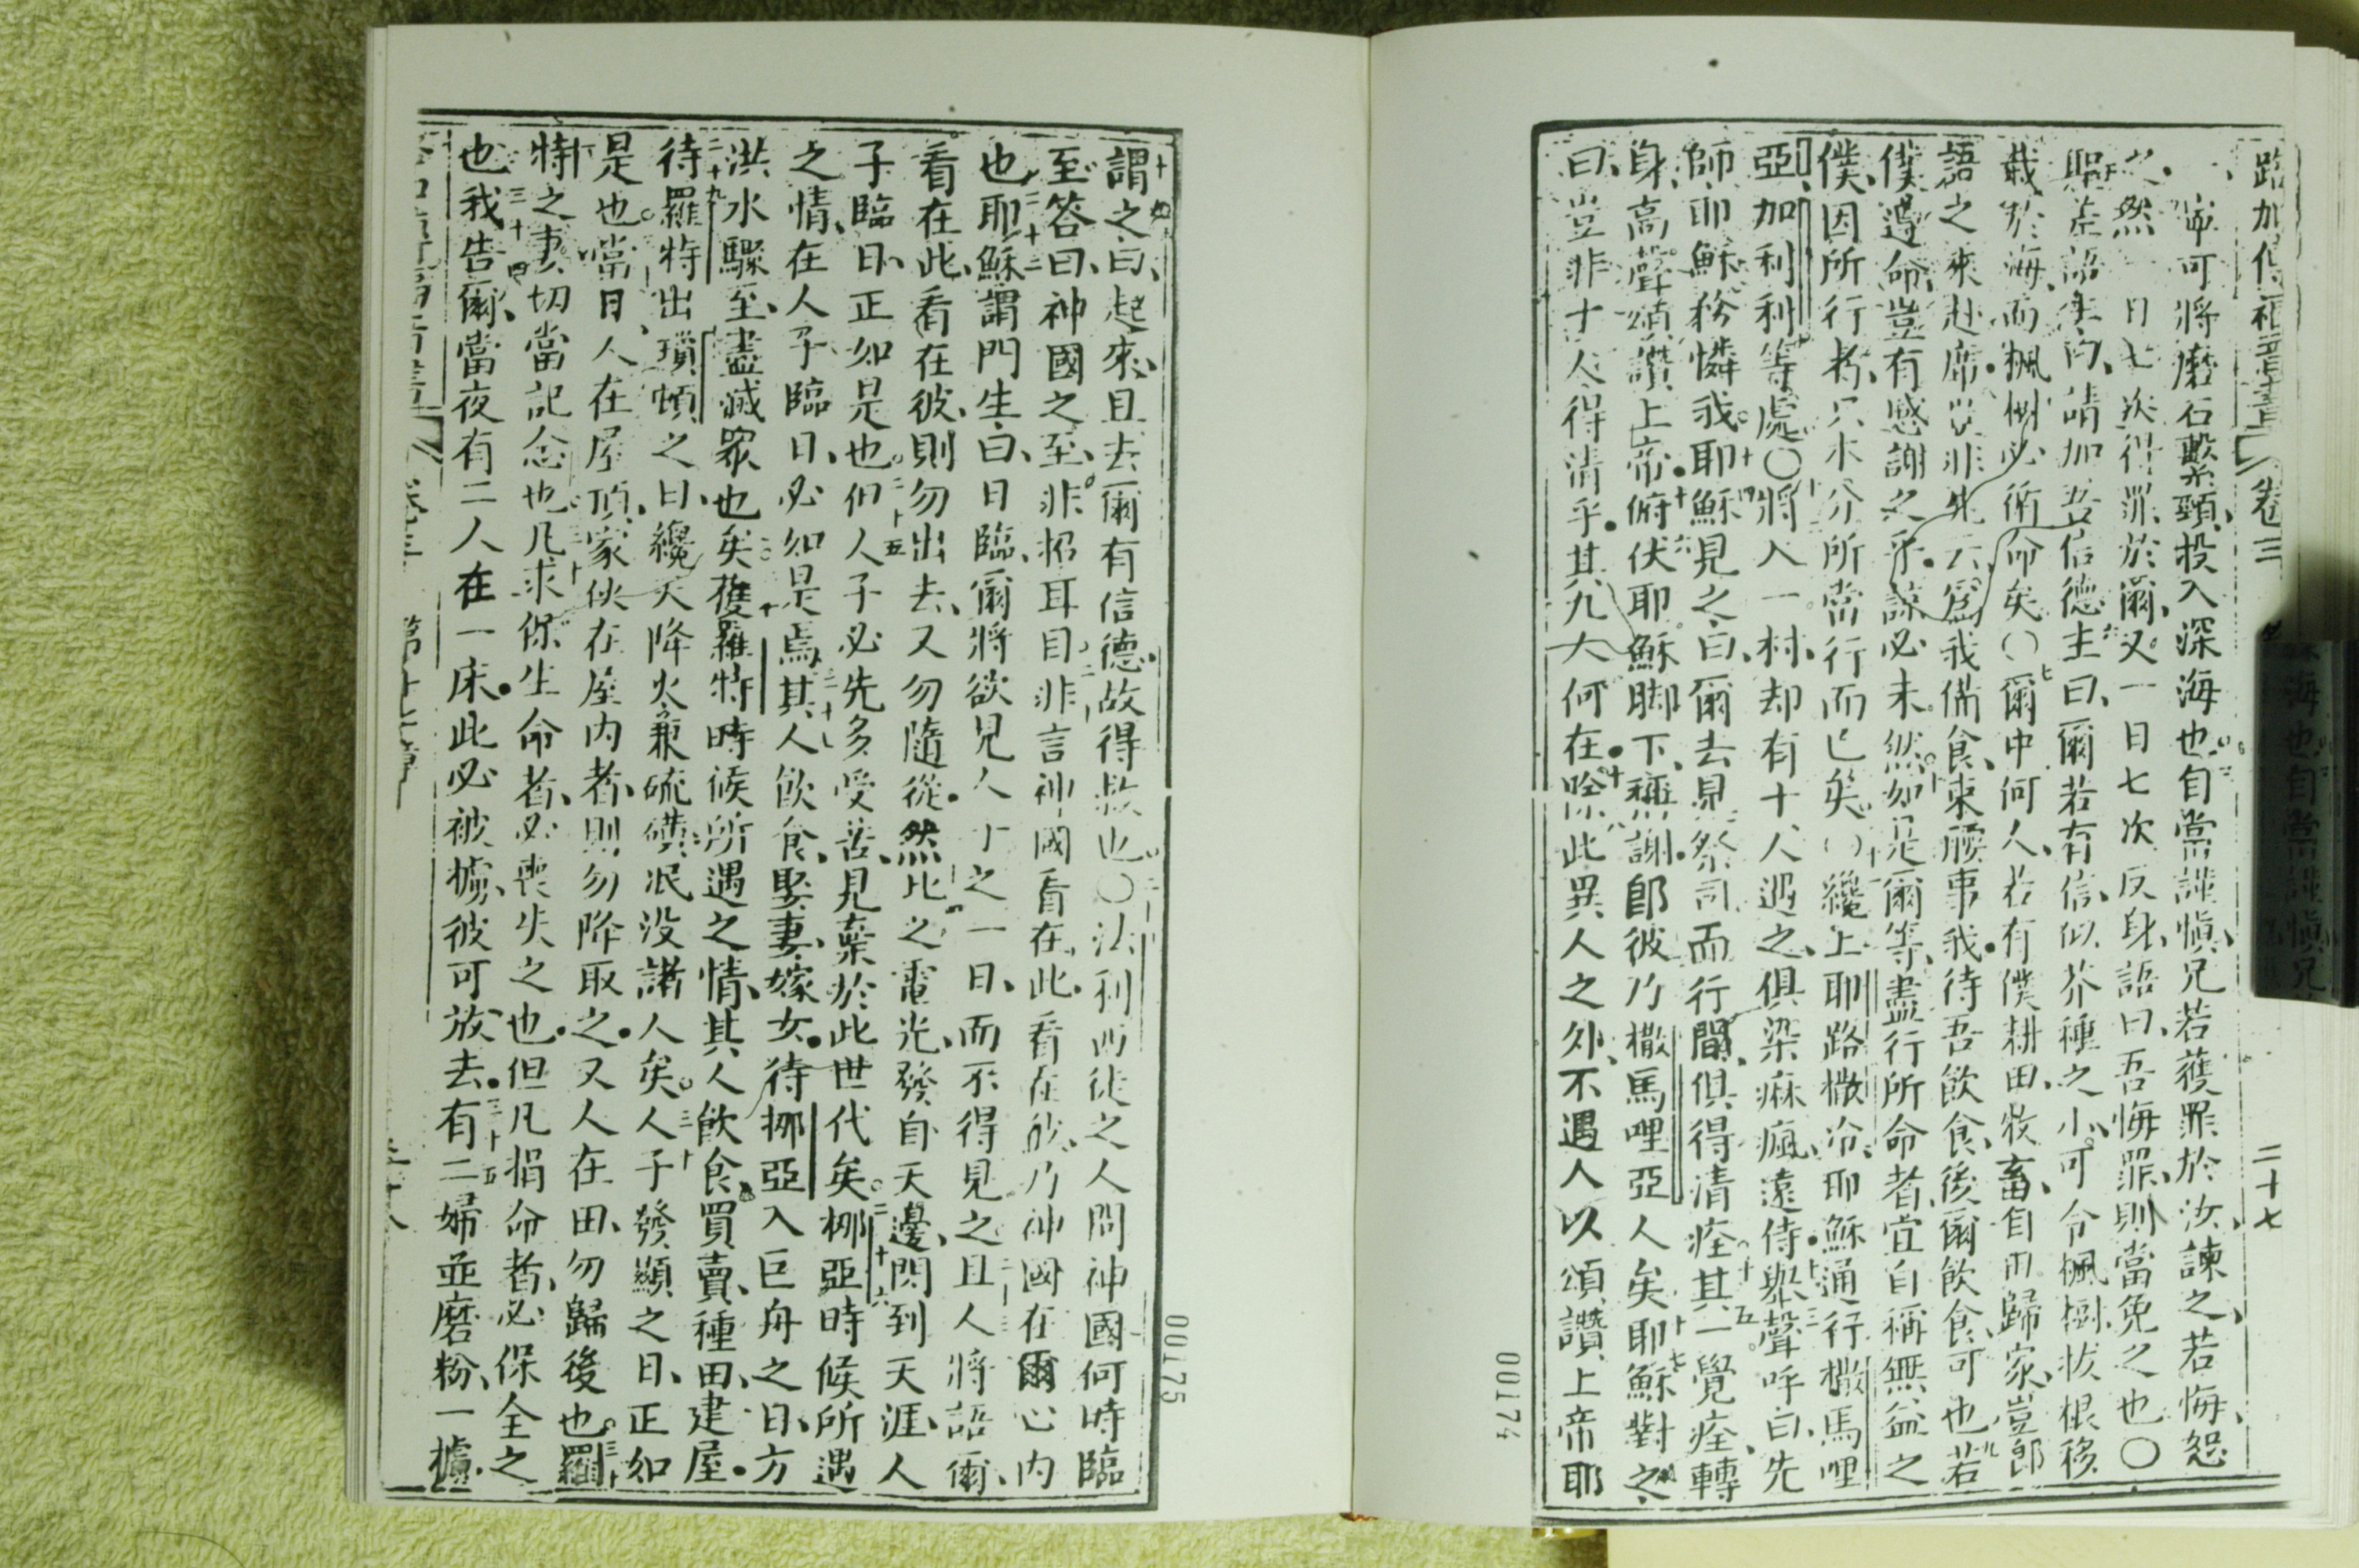 路加傳福音書 卷三 二十七
寧可將磨石繫頸、投入深海也、自當謹慎、兄若獲罪於汝、諫之、若悔、恕
之、然一日七次得罪於爾、又一日七次反身、語曰、吾悔罪、則當免之也〇
使徒語主曰、請加吾信德、主曰、爾若有信、似芥種之小、可令楓樹、拔根移
栽於海、而楓樹必術命矣〇爾中何人、若有僕耕田、牧畜、自田歸家、豈郎
語之來赴席、豈非先云、爲我備食、束腰事我、待吾飲食、後爾飲食可也、若
僕遵命、豈有感謝之乎、諒必未然、如是爾等、盡行所命者、宜自稱無益之
僕、因所行者、只本分所當行而已矣〇纔上耶路撒冷、耶穌通行撒馬哩
亞、加利利等處〇將入一村、却有十人遇之、俱染痳瘋、遠侍、舉聲呼曰、先
師耶穌、務憐我、耶穌見之、曰、爾去見祭司、而行間、俱得清痊、其一覺痊、轉
身、高聲頌讚上帝、俯伏耶穌脚下、稱謝、郎彼乃撒馬哩亞人矣、耶穌對之
曰、豈非十人得清乎、其九人何在、除此異人之外、不遇人以頌讚上帝、耶
謂之曰、起來、且去、爾有信德、故得救也〇法利西徒之人問神國何時臨
至、答曰、神國之至、非招耳目、非言神國看在此、看在彼、乃神國在爾心内
也、耶穌謂門生、曰、日臨、爾將欲見人子之一日、而不得見之、且人將語爾、
看在此、看在彼、則勿出去、又勿隨從、然比之電光、發自天邊、閃到天涯、人
子臨日、正如是也、但人子必先多受苦、見棄於此世代矣、挪亞時候所遇
之情、在人子臨日、必如是焉、其人飲食、娶妻、嫁女、待挪亞入巨舟之日、方
洪水驟至、盡滅眾也矣、蓷羅特時候所遇之情、其人飲食、買賣、種田、建屋、
待羅特出瑣頓之日、纔天降火兼硫磺、泯没諸人矣、人子發顯之日、正如
是也、當日、人在屋頂、家伙在屋内者、則勿降取之、又人在田、勿歸後也、羅
特之妻、切當記念也、凡求保生命者、必喪失之也、但凡捐命者、必保全之
也、我告爾、當夜有二人在一床、此必被擄、彼可放去、有二婦並磨粉、一擄
卷三 第十七章 二十八
00174
00175